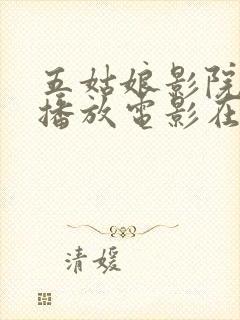 五姑娘影院
播放电影在
清媛